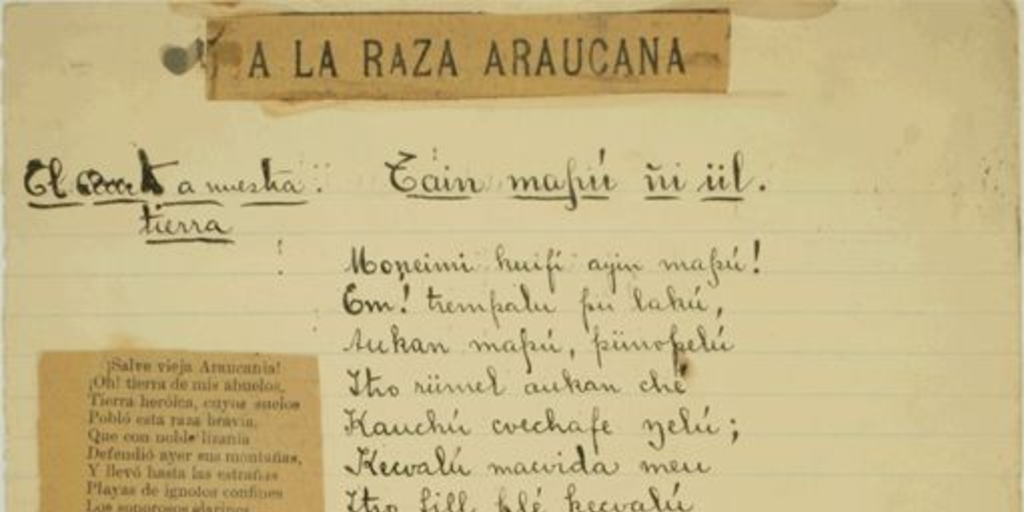 A LA RAZA ARAUCANA
El a nuestra
tierra
Tain mapú ñi ül.
Moņeimi kuifi ayin mapú!
Em! trempalu pu lakú,
Aukan mapú, pünopelú
Itro rümel aukan ché
Kauchú cvechafe yelú;
Kecvalú macvida meu
Itro fill plé kecvalú
¡Salve vieja Araucanía!
¡Oh! tierra de mis abuelos,
Tierra heróica, cuyos suelos
Pobló esta raza bravía,
Que con noble lizanía
Defendió ayer sus montañas,
Y llevó hasta las estrañas
Playas de ignotos confines
Los sonorosos clarines